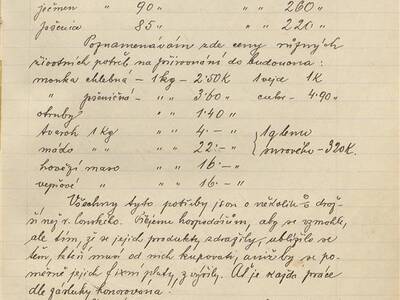 ječmen " 90 " " 260 "
pšenice " 85 " " 220 "
Poznamenávám zde ceny různých
životních potřeb, na přirovnání do budoucna:
mouka chlebná – 1 kg – 2·50 K 1 vejce 1 K
" pšeničná – " " 3·60 " cukr – 4·90 "
otruby " " 1·40 "
tvaroh 1 kg " " 4·– "
máslo " " " 22·– " surového – 320 K.
hovězí maso " " 16·– "
vepřové " " " 16·– "
Všechny tyto potřeby jsou o několik % draž-
ší nej r. loňského. Přejeme hospodářům, aby se vzmohli,
ale tím, že se jejich produkty zdražily, ublížilo se
těm, kteří musí od nich kupovati, aniž by se po-
měrně jejich fixní platy zvýšily. Ať je každá práce
dle zásluhy honorována.